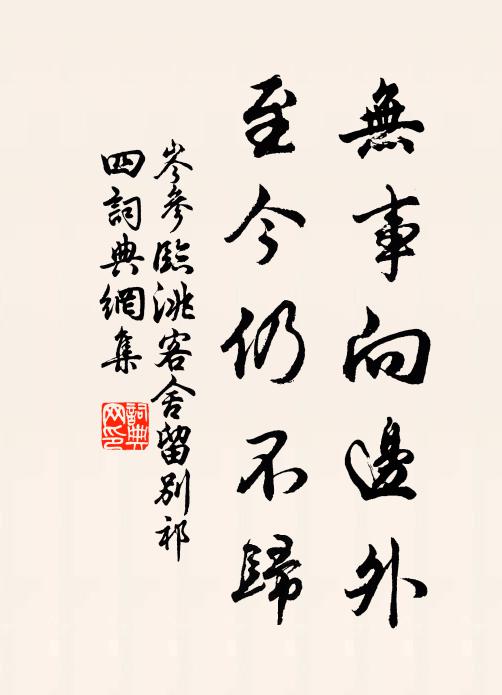 無事向邊外
至今仍不歸
岑參臨洮客舍留別祁
四詞典網集
詞典网印